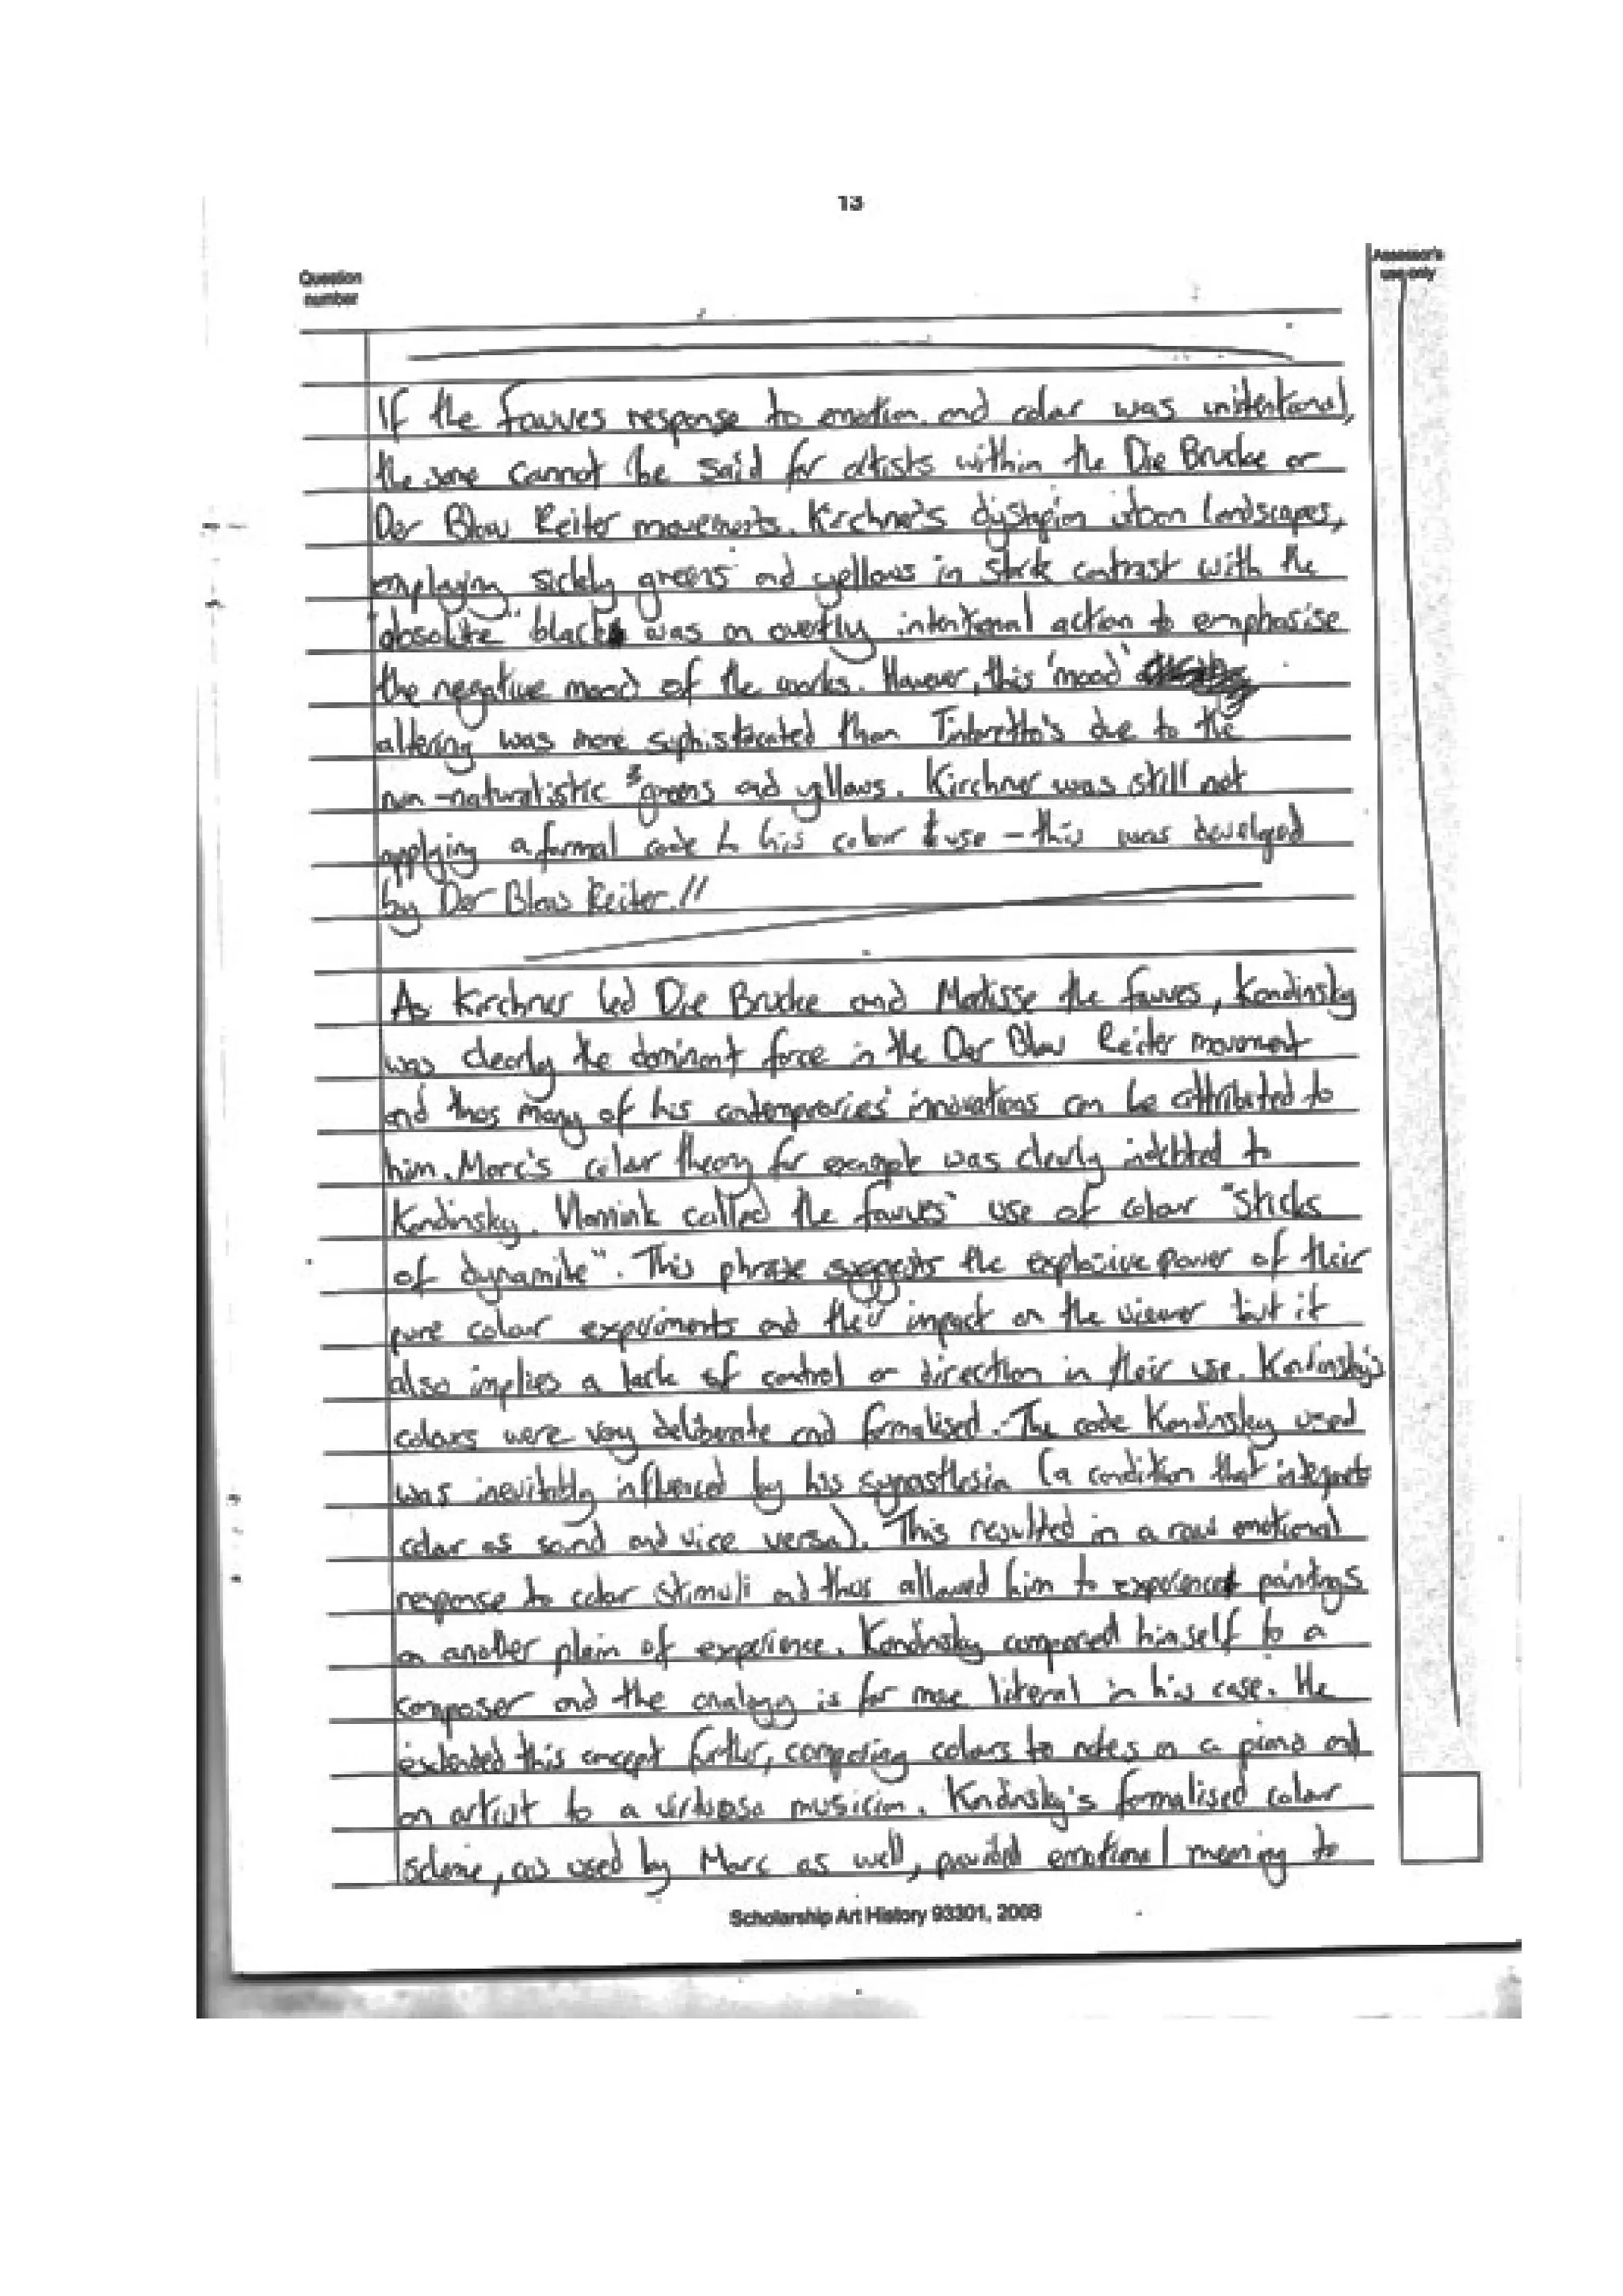 13
Question
number
Assessor's
use only
If the Fauves response to emotion and colour was unintentional,
the same cannot be said for artists within the Die Brucke or
Der Blau Reiter movements. Kirchner's dystopian urban landscapes,
employing sickly greens and yellows in stark contrast with the
"absolute" black was an overtly intentional action to emphasise
the negative mood of the works. However, this 'mood'
altering was more sophisticated than Tintoretto's due to the
non-naturalistic greens and yellows. Kirchner was still not
applying a formal code to his colour use - this was developed
by Der Blau Reiter.//
As Kirchner led Die Brucke and Matisse the fauves, Kandinsky
was clearly the dominant force in the Der Blau Reiter movement
and thus many of his contemporaries' innovations can be attributed to
him. Marc's colour theory for example was clearly indebted to
Kandinsky. Vlamink called the fauves' use of colour "sticks
of dynamite". This phrase suggests the explosive power of their
pure colour experiments and their impact on the viewer but it
also implies a lack of control or direction in their use. Kandinsky's
colours were very deliberate and formalised. The code Kandinsky used
was inevitably influenced by his synasthesia (a condition that interprets
colour as sound and vice versa). This resulted in a raw emotional
response to colour stimuli and thus allowed him to experience paintings
on another plain of experience. Kandinsky compared himself to a
composer and the analogy is far more literal in his case. He
extended this concept further, comparing colours to notes on a piano and
an artist to a virtuoso musician. Kandinsky's formalised colour
scheme, as used by Marc as well, provided emotional meaning to
Scholarship Art History 93301, 2008